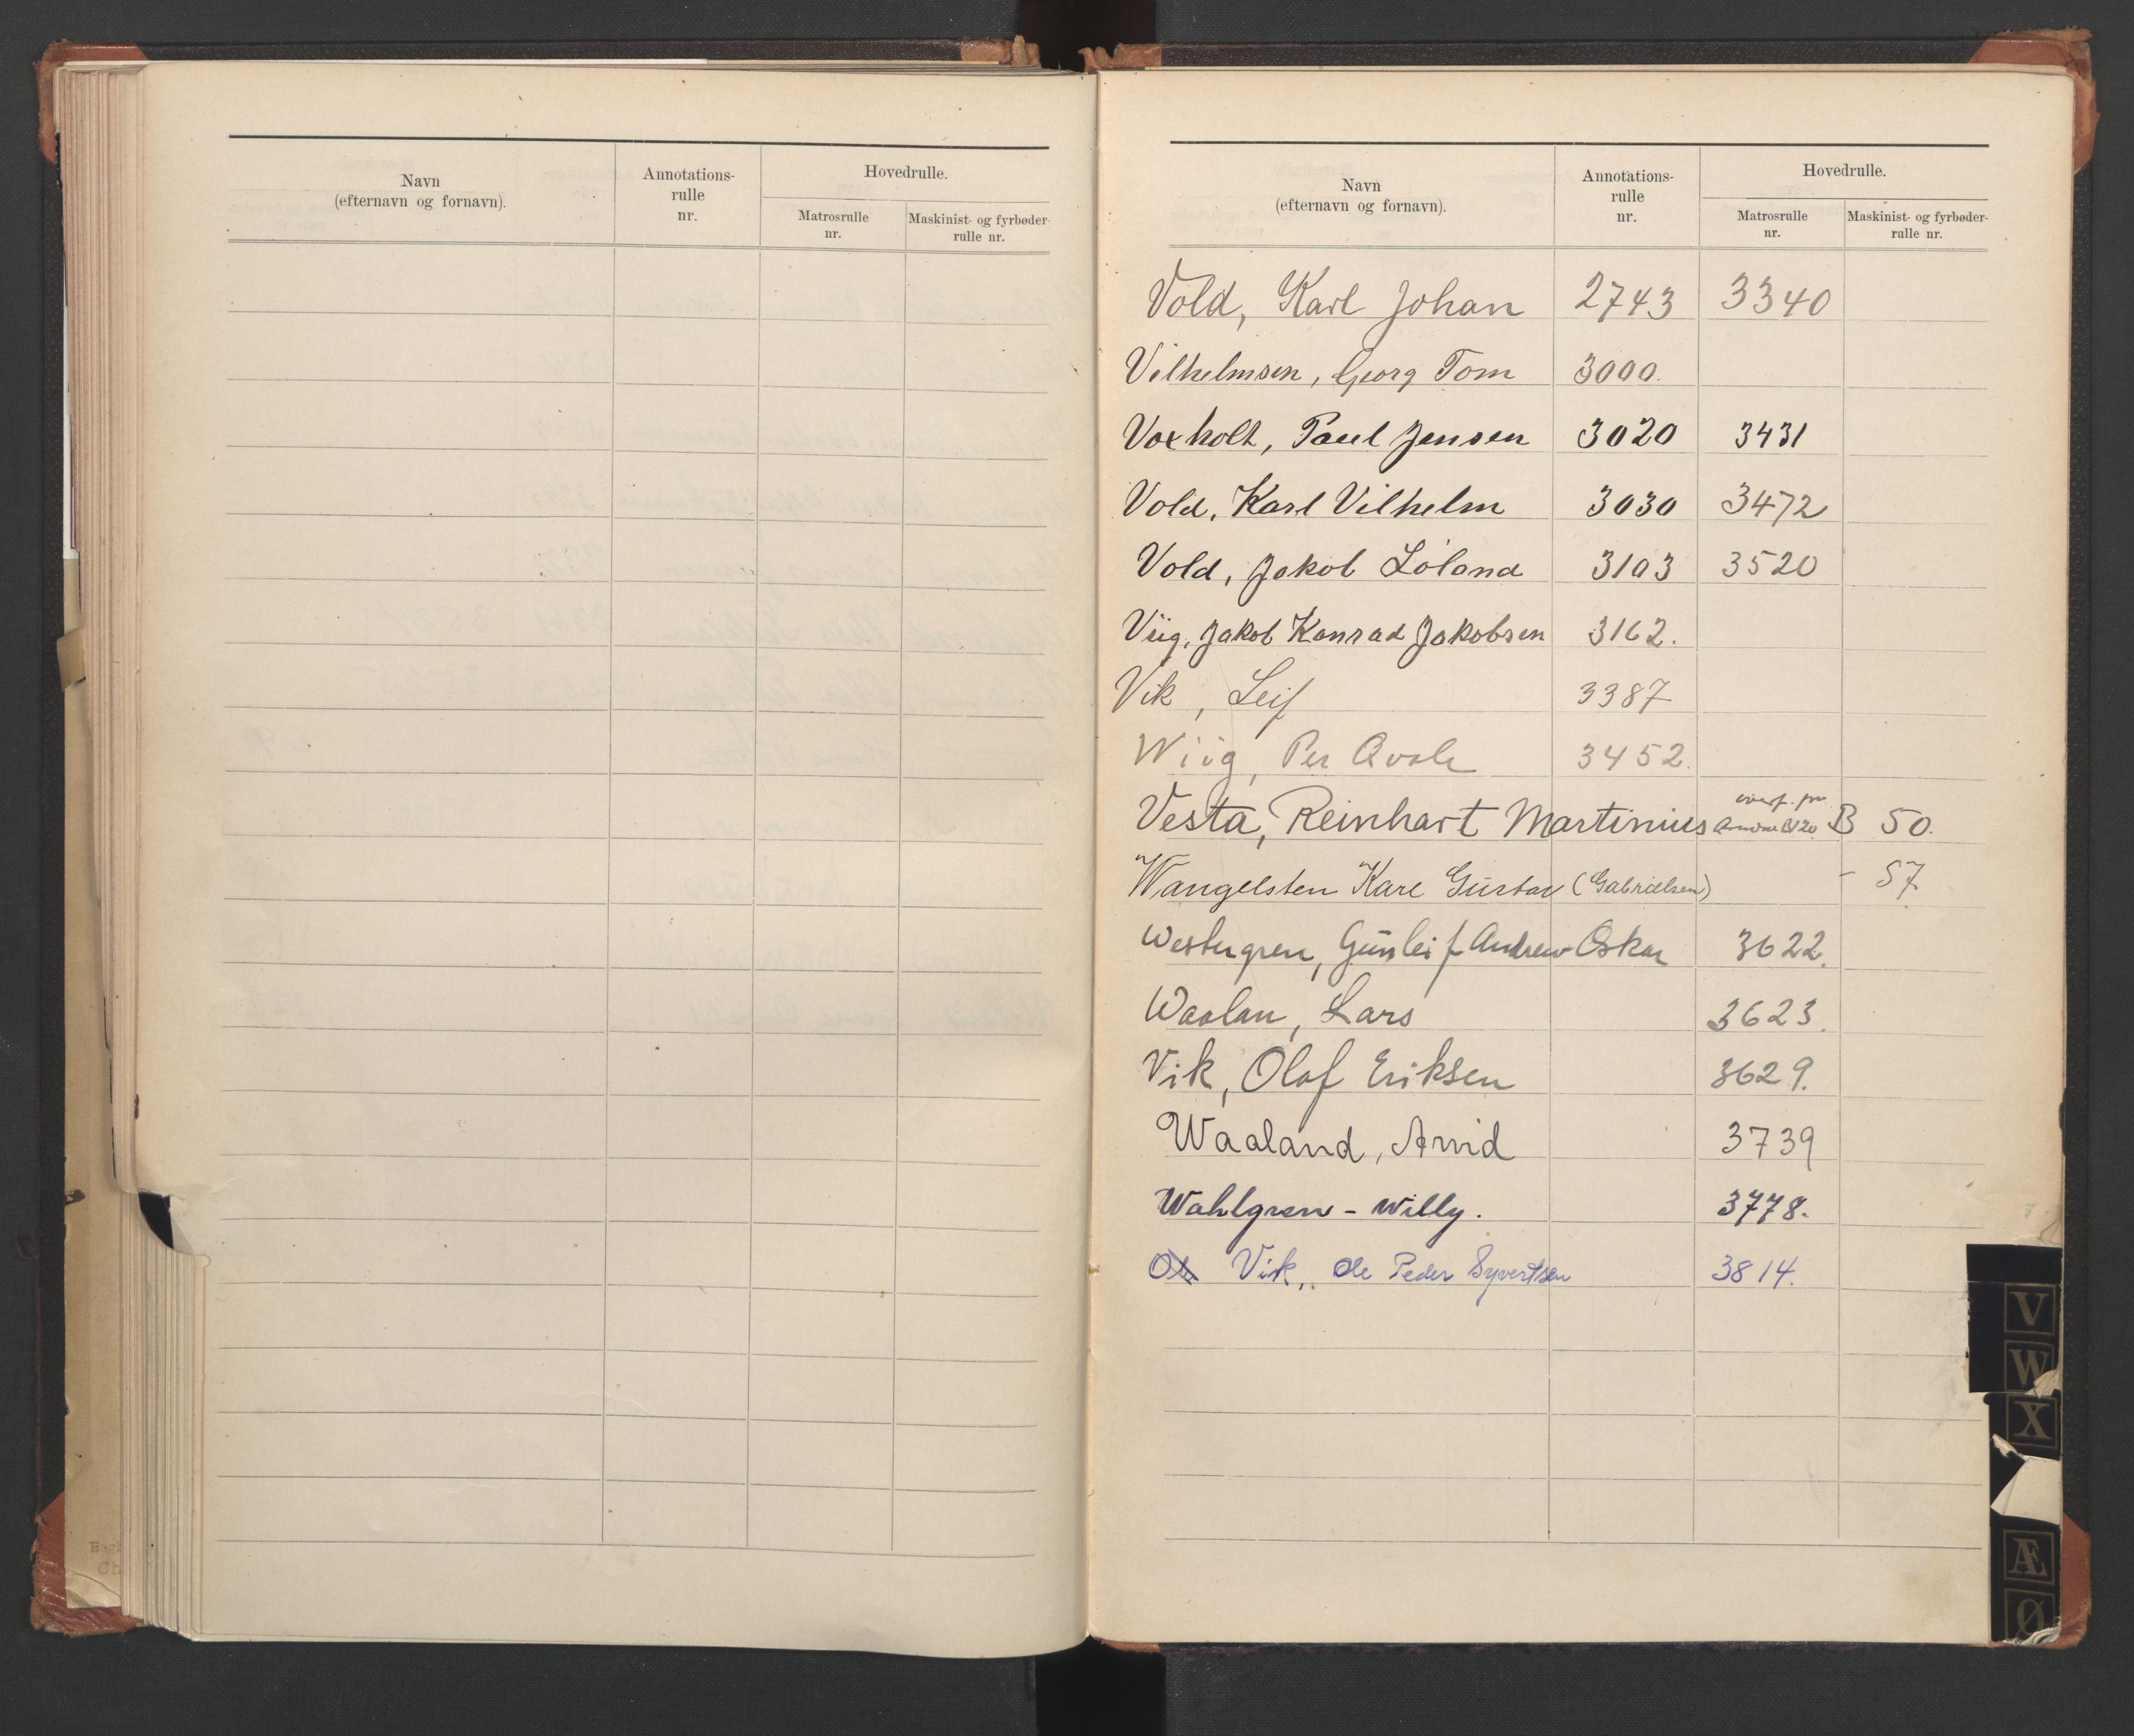 Navn
(efternavn og fornavn).
Annotations-
rulle
nr.
Hovedrulle.
Matrosrulle
nr.
Maskinist- og fyrbøder-
rulle nr.
Navn
(efternavn og fornavn).
Annotations-
rulle
nr.
Hovedrulle.
Matrosrulle
nr.
Maskinist- og fyrbøder-
rulle nr.
Vold, Karl Johan 2743 3340
Vilhelmsen, Georg Tom 3000.
Voxholt, Paul Jensen 3020 3431
Vold, Karl Vilhelm 3030 3472
Vold, Jakob Loland 3103 3520
Viig, Jakob Konrad Jakobsen 3162.
Vik, Leif 3387
Wiig, Per Qvale 3452.
Vesta, Reinhart Martinius overf. fra B 50.
Wangelsten Kare Gustav (Gabrielsen) - 57
Westergren, Gunleif Andrew Oskar 3622.
Waalan, Lars 3623.
Vik, Olaf Eriksen 3629.
Waaland, Arvid 3739
Wahlgren - Willy. 3778.
Vik, Ole Peder Syvertsen 3814.
V
W
X
Æ
Ø